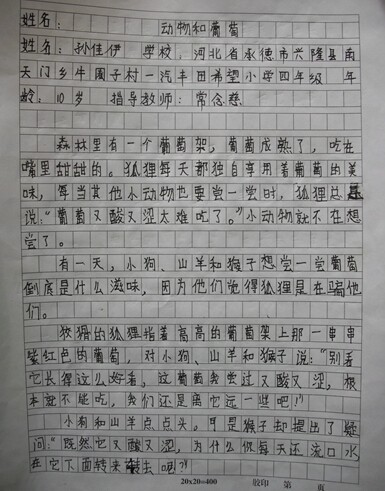 姓名：
动物和葡萄
姓名：孙佳伊 学校：河北省承德市兴隆县南
天门乡牛圈子村一汽丰田希望小学四年级 年
龄：10岁 指导教师：常念慈
森林里有一个葡萄架，葡萄成熟了，吃在
嘴里甜甜的。狐狸每天都独自享用着葡萄的美
味，每当其他小动物也要尝一尝时，狐狸总是
说：“葡萄又酸又涩太难吃了。”小动物就不在想
尝了。
有一天，小狗、山羊和猴子想尝一尝葡萄
倒底是什么滋味，因为他们觉得狐狸是在骗他
们。
狡猾的狐狸指着高高的葡萄架上那一串串
紫红色的葡萄，对小狗、山羊和猴子说：“别看
它长得这么好看，这葡萄我尝过又酸又涩，根
本就不能吃，我们还是离它远一些吧！”
小狗和山羊点点头。可是猴子却提出了疑
问：“既然它又酸又涩，为什么你每天还流口水
在它下面转来转去呢？”
20×20=400 胶印 第 页